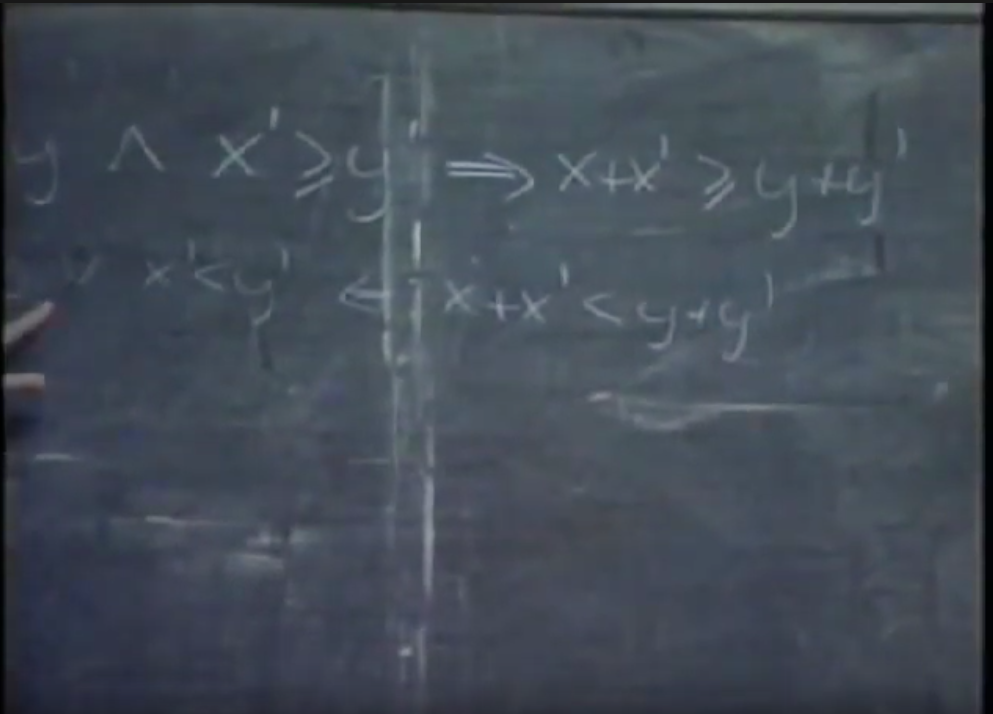 y ∧ x' ≥ y' ⇒ x+x' ≥ y+y'
∨ x' < y' ⇐ x+x' < y+y'